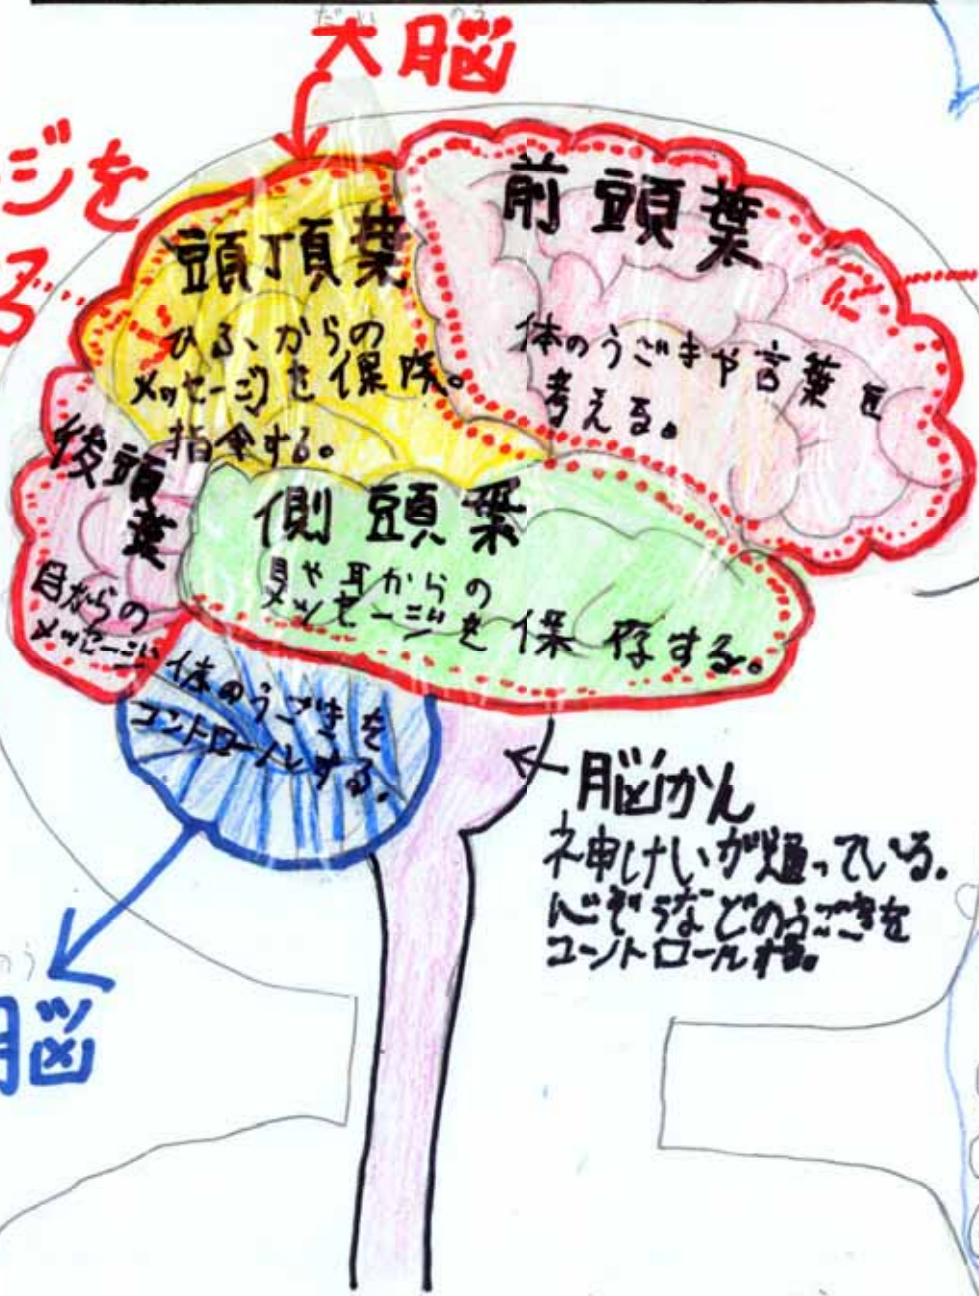 だい のう
大脳
ジを
る
頭頂葉
ひふ、からの
メッセージを保険。
指令する。
前頭葉
体のうごきや言葉を
考える。
後頭
葉
目からの
メッセージ
側頭葉
目や耳からの
メッセージを保存する。
体のうごきを
コントロールする。
脳かん
神けいが通っている。
心ぞうなどのうごきを
コントロールする。
のう
脳